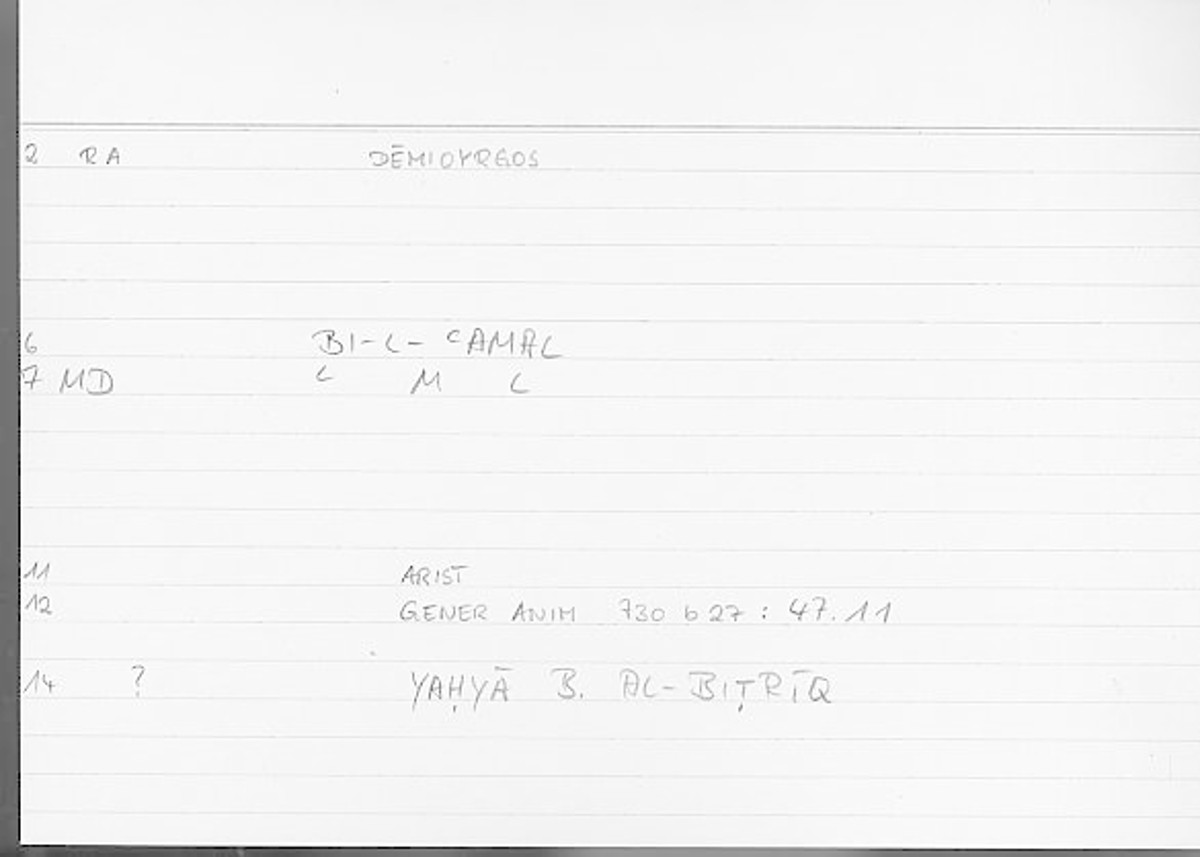 2 RA DĒMIOYRGOS
6 BI-L-ʿAMAL
7 MD ʿ M L
11 ARIST
12 GENER ANIM 730 b 27 : 47.11
14 ? YAḤYĀ B. AL-BIṬRĪQ